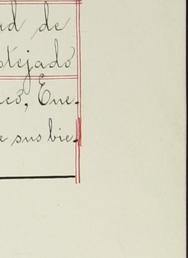 ad de
stejado
ico, Ene-
e sus bie-